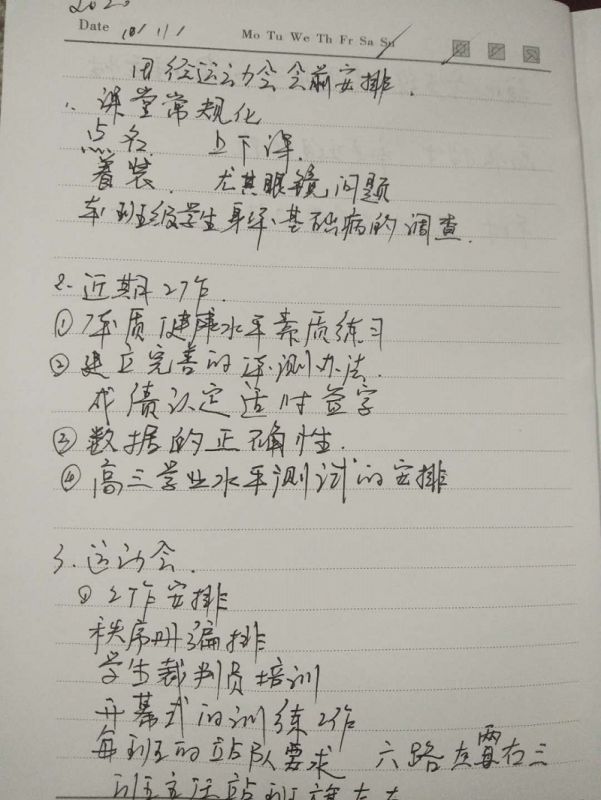 2020
Date 10/11/1 Mo Tu We Th Fr Sa Su
田径运动会会前安排.
1. 课堂常规化
点名. 上下课.
着装. 尤其眼镜问题
班级学生身体基础病的调查.
2. 近期工作.
① 体质健康水平素质练习
② 建立完善的体测办法.
成绩认定适时签字
③ 数据的正确性.
④ 高三学业水平测试的安排
3. 运动会.
① 工作安排
秩序册编排
学生裁判员培训
开幕式的训练工作
每班的站队要求 六路左右三
班主任站班旗左